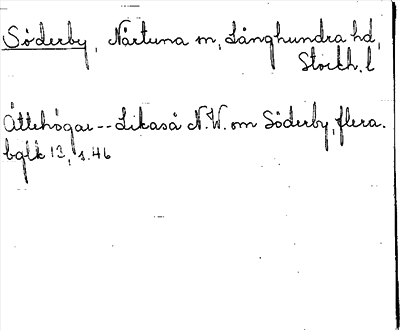 Söderby, Närtuna sn, Långhundra hd,
Stockh. l
Ättehögar -- Likaså N.W. om Söderby, flera.
bglk 13, s. 46